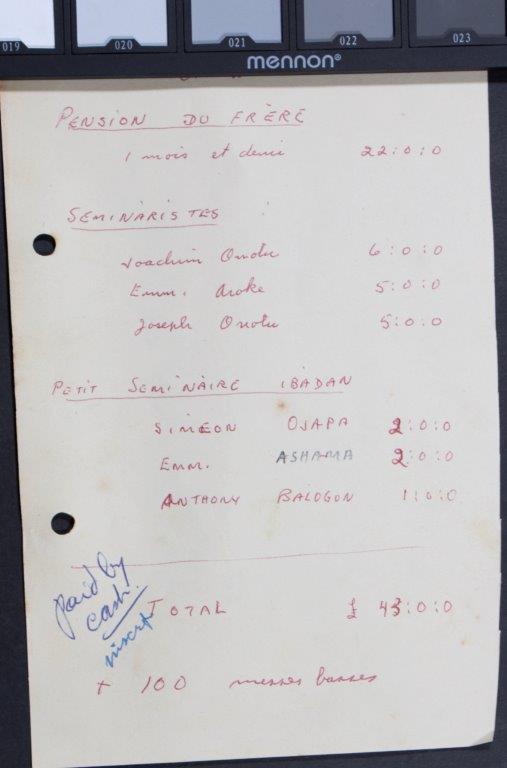 019 020 021 022 023
mennon®
PENSION DU FRÈRE
1 mois et demi 22:0:0
SEMINARISTES
Joachim Onotu 6:0:0
Emm. Aroke 5:0:0
Joseph Onotu 5:0:0
PETIT SEMINAIRE IBADAN
SIMEON OJAPA 2:0:0
EMM. ASHAMA 2:0:0
ANTHONY BALOGON 1:0:0
paid by
cash
TOTAL £ 43:0:0
+ 100 messes basses